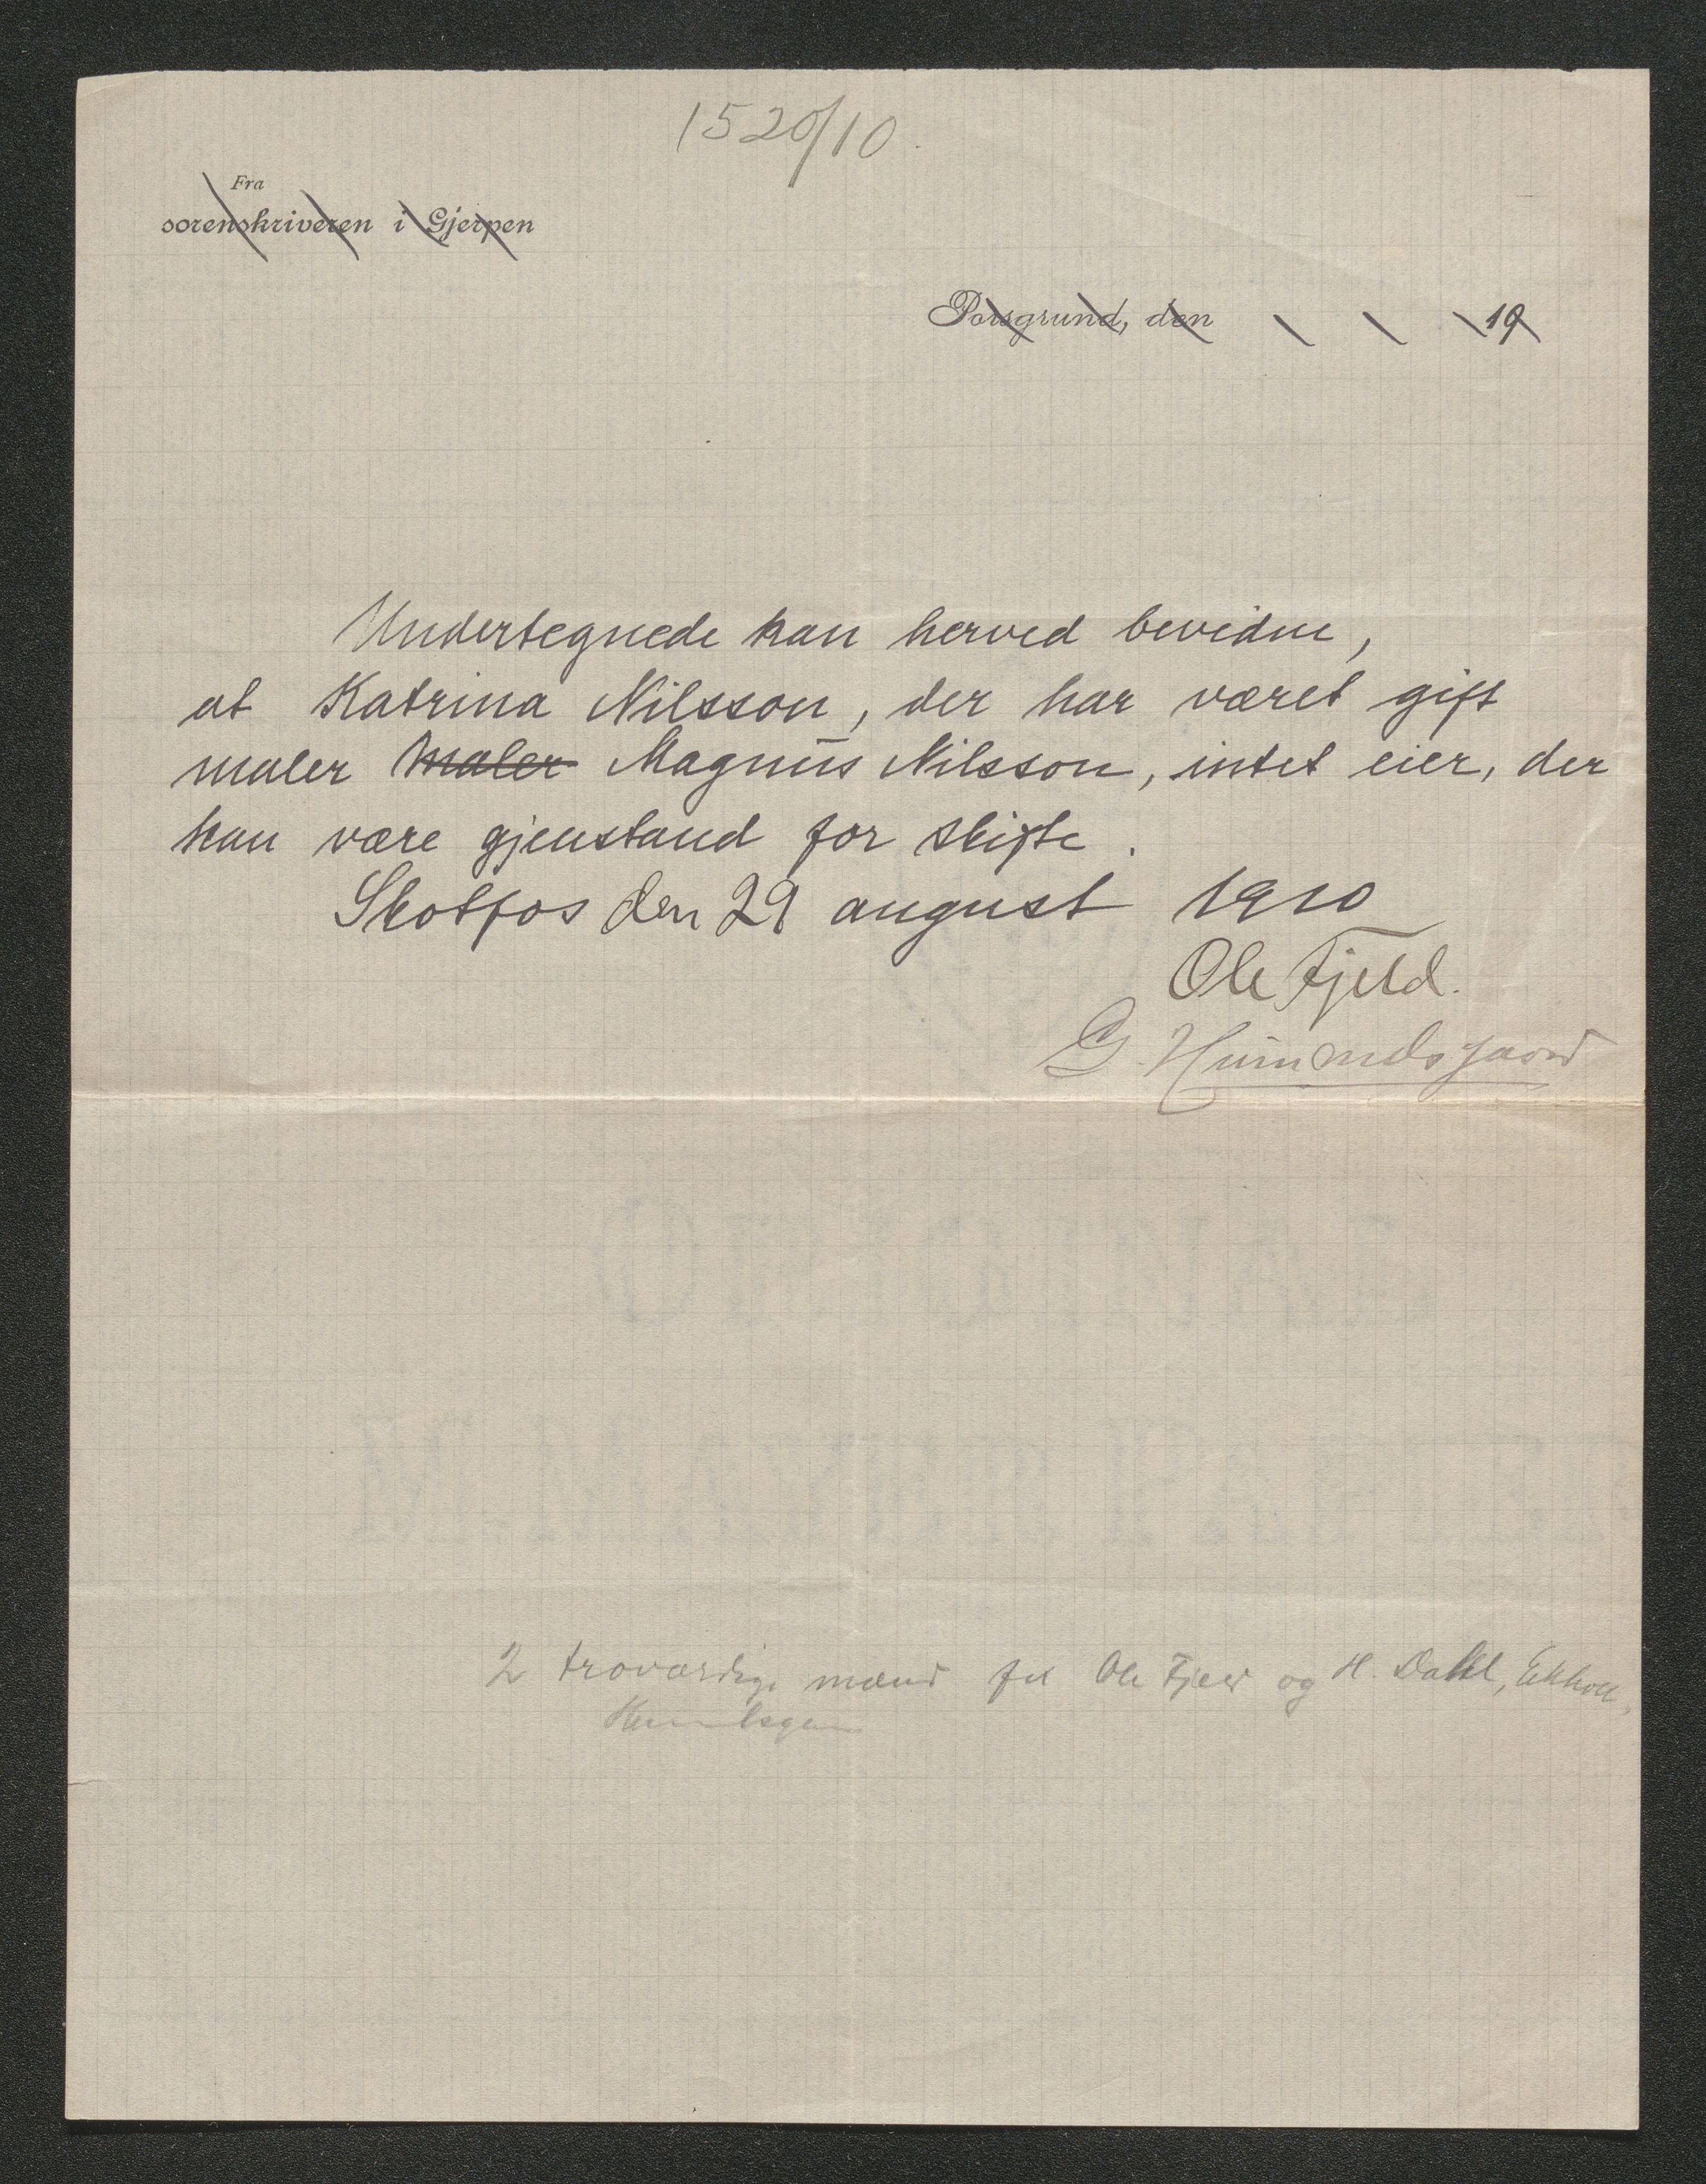 1520/10.
Fra
sorenskriveren i Gjerpen
Porsgrund, den 19
Undertegnede kan herved bevidne,
at Katrina Nilsson, der har været gift
maler maler Magnus Nilsson, intet eier, der
kan være gjenstand for skifte.
Skotfos den 29 august 1910
Ole Fjeld.
G.
2 troværdige mænd f.ex Ole Fjeld og H. Dahl,